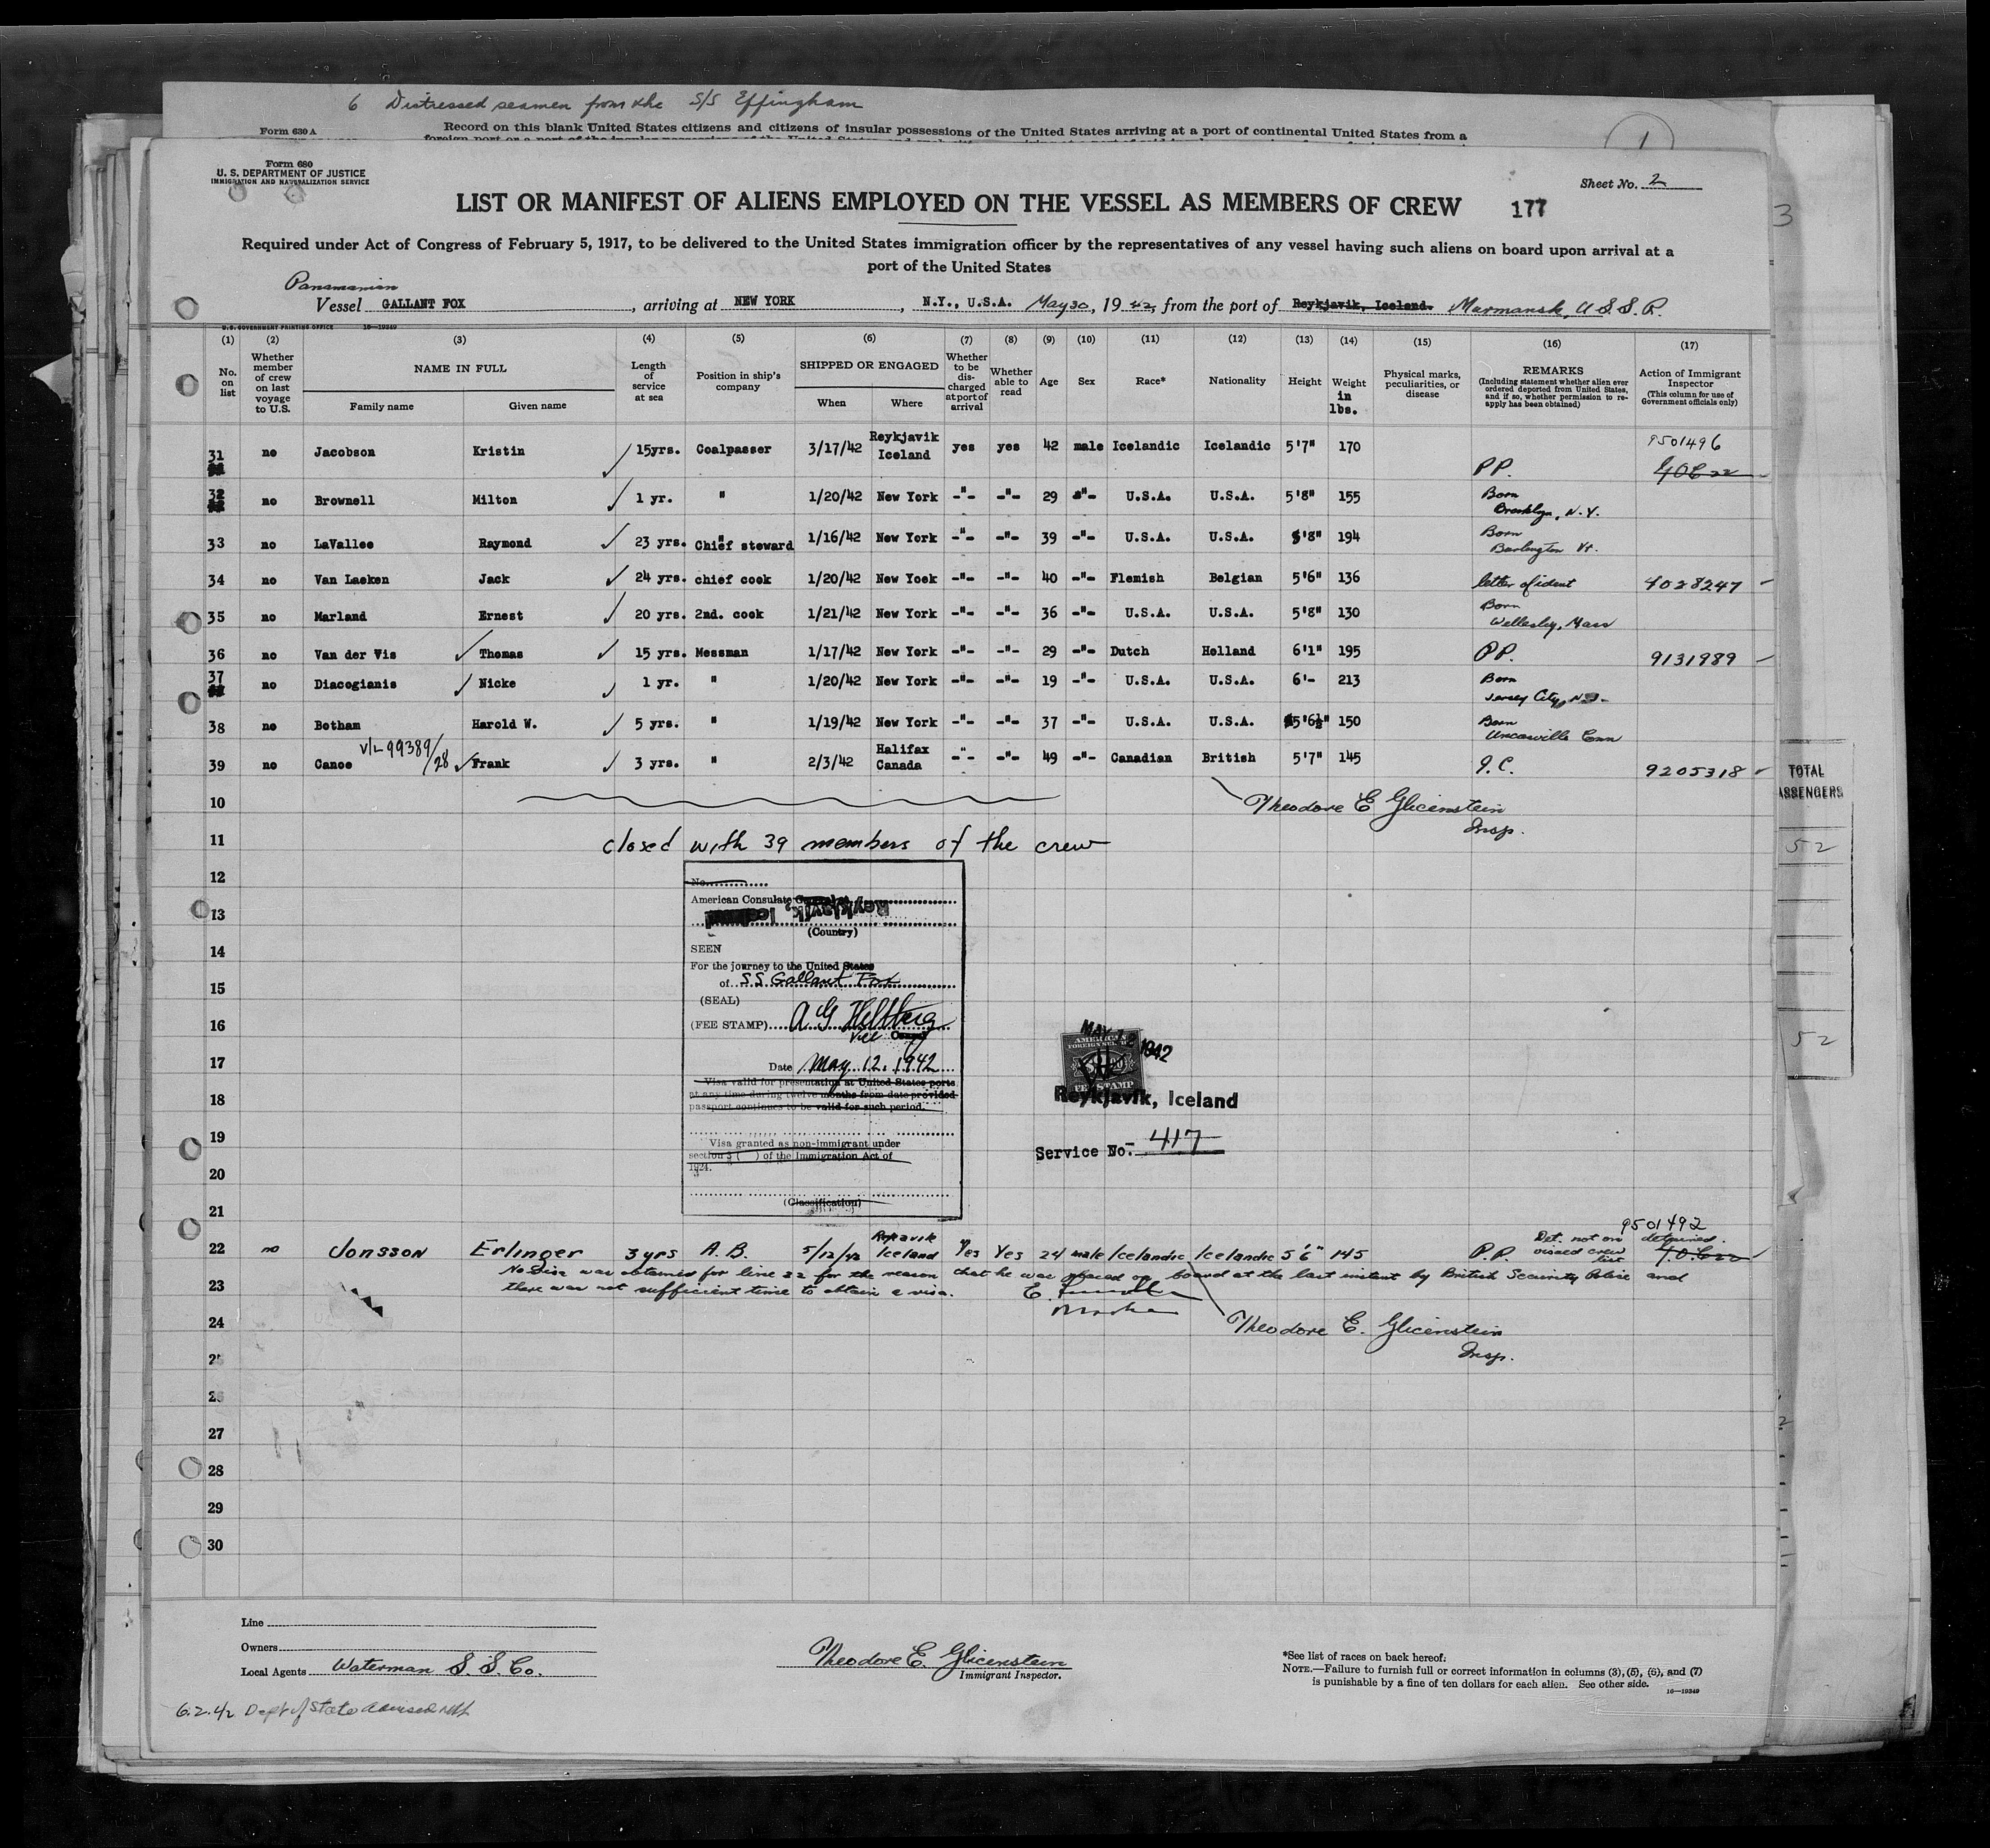 6 Distressed seamen from the S/S Effingham
Form 630 A
Record on this blank United States citizens and citizens of insular possessions of the United States arriving at a port of continental United States from a
1
Form 680
U. S. DEPARTMENT OF JUSTICE
IMMIGRATION AND NATURALIZATION SERVICE
Sheet No. 2
LIST OR MANIFEST OF ALIENS EMPLOYED ON THE VESSEL AS MEMBERS OF CREW 177
3
Required under Act of Congress of February 5, 1917, to be delivered to the United States immigration officer by the representatives of any vessel having such aliens on board upon arrival at a
port of the United States
Panamanian
Vessel GALLANT FOX, arriving at NEW YORK, N.Y., U.S.A. May 30, 1942, from the port of Reykjavik, Iceland. Murmansk, U S. S. R.
U.S. GOVERNMENT PRINTING OFFICE 16—19249
(1) (2) (3) (4) (5) (6) (7) (8) (9) (10) (11) (12) (13) (14) (15) (16) (17)
No. on list
Whether member of crew on last voyage to U.S.
NAME IN FULL
Family name
Given name
Length of service at sea
Position in ship's company
SHIPPED OR ENGAGED
When
Where
Whether to be discharged at port of arrival
Whether able to read
Age
Sex
Race*
Nationality
Height
Weight in lbs.
Physical marks, peculiarities, or disease
REMARKS
(Including statement whether alien ever ordered deported from United States, and if so, whether permission to reapply has been obtained)
Action of Immigrant Inspector
(This column for use of Government officials only)
31 no Jacobson Kristin 15yrs. Coalpasser 3/17/42 Reykjavik Iceland yes yes 42 male Icelandic Icelandic 5'7" 170 PP. 9501496
32 no Brownell Milton 1 yr. " 1/20/42 New York -"- -"- 29 -"- U.S.A. U.S.A. 5'8" 155 Born Brooklyn, N.Y.
33 no LaVallee Raymond 23 yrs. " Chief steward 1/16/42 New York -"- -"- 39 -"- U.S.A. U.S.A. 5'8" 194 Born Burlington Vt.
34 no Van Laeken Jack 24 yrs. chief cook 1/20/42 New Yoek -"- -"- 40 -"- Flemish Belgian 5'6" 136 letter of ident 4028247
35 no Marland Ernest 20 yrs. 2nd. cook 1/21/42 New York -"- -"- 36 -"- U.S.A. U.S.A. 5'8" 130 Born Wellesley, Mass
36 no Van der Vis Thomas 15 yrs. Messman 1/17/42 New York -"- -"- 29 -"- Dutch Holland 6'1" 195 PP. 9131989
37 no Diacogianis Nicke 1 yr. " 1/20/42 New York -"- -"- 19 -"- U.S.A. U.S.A. 6'- 213 Born Jersey City, N.J.
38 no Botham Harold W. 5 yrs. " 1/19/42 New York -"- -"- 37 -"- U.S.A. U.S.A. 5'6½" 150 Born Uncasville Conn
39 no Canoe V/L 99389/28 Frank 3 yrs. " 2/3/42 Halifax Canada -"- -"- 49 -"- Canadian British 5'7" 145 I.C. 9205318
TOTAL
PASSENGERS
52
52
10
Theodore E Glicenstein
Insp.
11 closed with 39 members of the crew
12
No.
American Consulate
Reykjavik, Iceland
13
(Country)
14
SEEN
For the journey to the United States
15
of S.S Gallant Fox
(SEAL)
16
(FEE STAMP)
Vice Consul
17
Date May 12. 1942
Visa valid for presentation at United States ports
18
at any time during twelve months from date provided
passport continues to be valid for such period.
19
Visa granted as non-immigrant under
section 3 ( ) of the Immigration Act of
1924.
20
(Classification)
21
MAY 12 1942
AMERICAN
FOREIGN SERVICE
FEE STAMP
Reykjavik, Iceland
Service No. 417
22 no Jonsson Erlinger 3 yrs A. B. 5/12/42 Iceland Yes Yes 24 male Icelandic Icelandic 5'6" 145 P.P. Det. not on visaed crew list 9501492 detained.
No visa was obtained for line 22 for the reason that he was placed on board at the last instant by British Security Police and
23 there was not sufficient time to obtain a visa.
Master
24
Theodore E. Glicenstein
Insp.
25
26
27
28
29
30
Line
Owners
Local Agents Waterman S. S. Co.
Theodore E. Glicenstein
Immigrant Inspector.
*See list of races on back hereof.
NOTE.—Failure to furnish full or correct information in columns (3), (5), (6), and (7)
is punishable by a fine of ten dollars for each alien. See other side.
16—19249
6.2.42 Dept of State advised